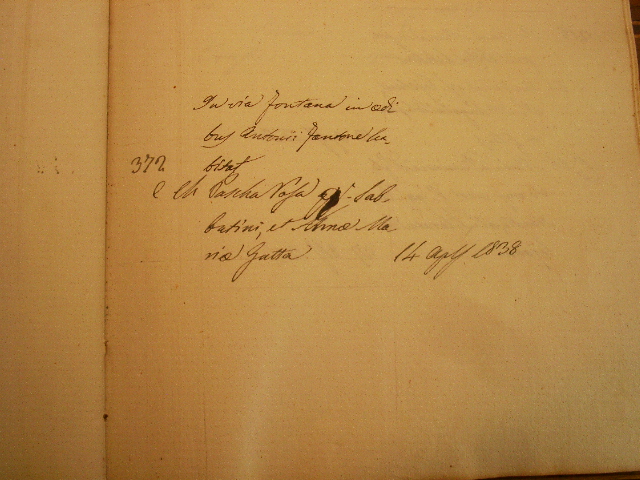 In via Fontana in ædi
bus Antonii Fantone ha
bitat
372
C M Pascha Rosa qd. Sab-
batini, et Annæ Ma
riæ Gatta 14 Aplis 1838